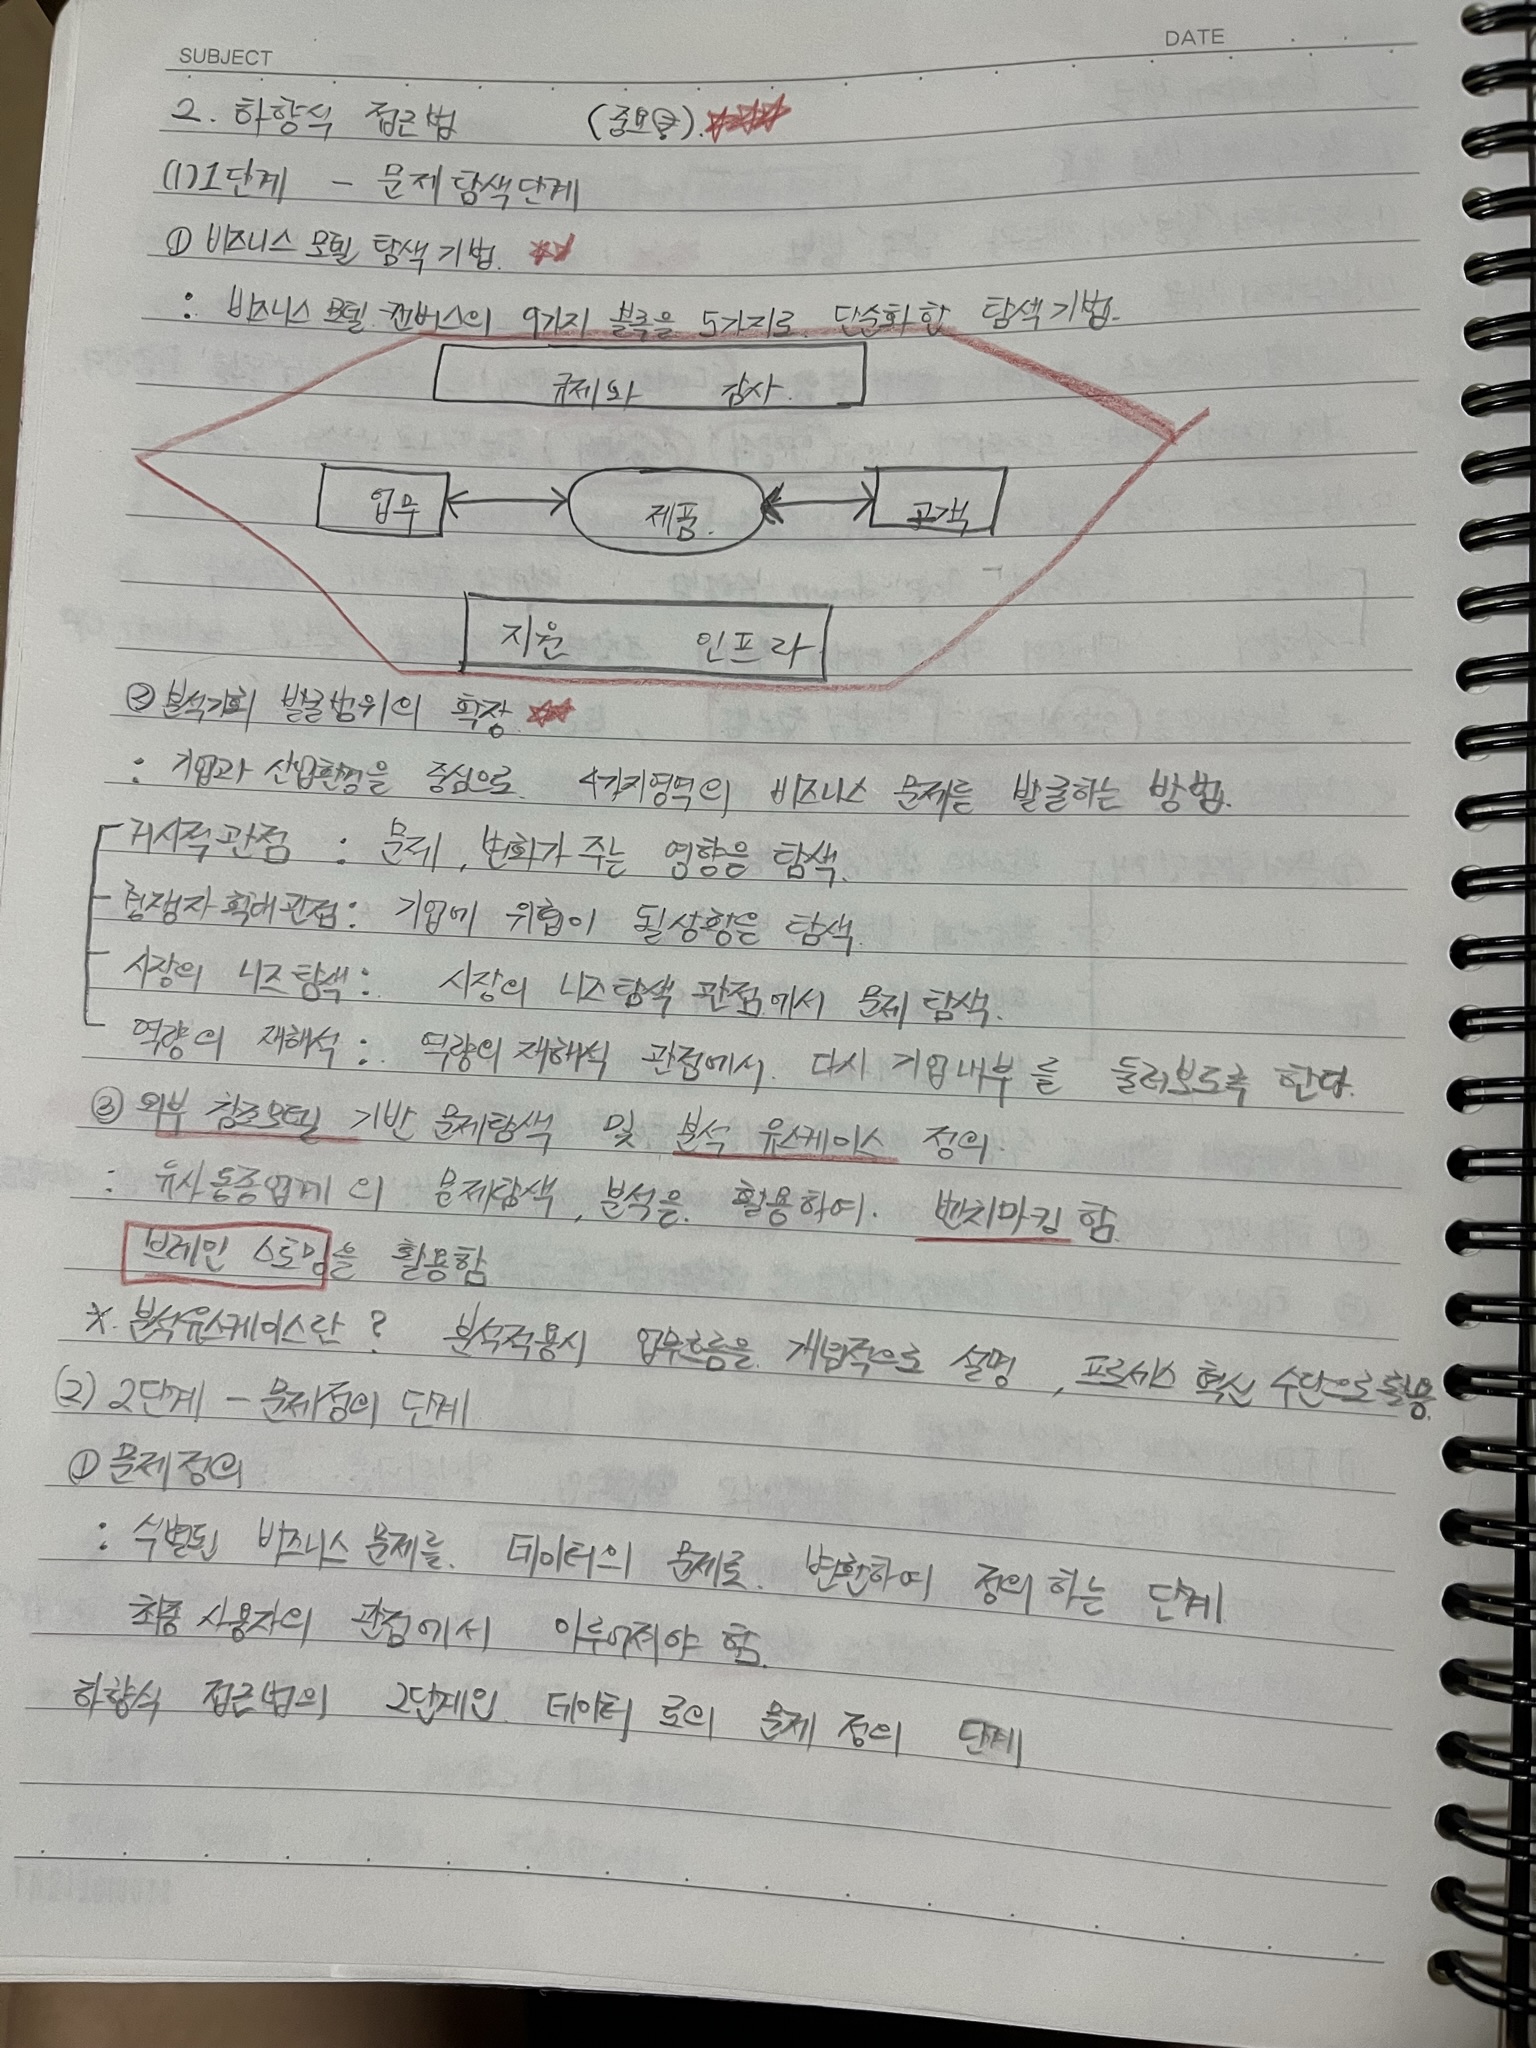 SUBJECT
DATE
2. 하향식 접근법 (중요).
(1) 1단계 - 문제탐색단계
① 비즈니스 모델 탐색 기법.
: 비즈니스 모델 캔버스의 9가지 블록을 5가지로 단순화한 탐색기법.
규제와 감사
업무 제품. 고객
지원 인프라
② 분석기회 발굴범위의 확장
: 기업과 산업환경을 중심으로 4가지영역의 비즈니스 문제를 발굴하는 방법.
거시적관점 : 문제, 변화가 주는 영향을 탐색.
경쟁자확대관점 : 기업에 위협이 될상황을 탐색.
시장의 니즈탐색 : 시장의 니즈탐색 관점에서 문제탐색.
역량의 재해석 : 역량의 재해석 관점에서 다시 기업내부를 둘러보도록 한다.
③ 외부 참조모델 기반 문제탐색 및 분석 유스케이스 정의.
: 유사동종업계의 문제탐색, 분석을 활용하여 벤치마킹함
브레인 스토밍을 활용함
※ 분석유스케이스란? 분석적용시 업무흐름을 개념적으로 설명, 프로세스 혁신 수단으로 활용.
(2) 2단계 - 문제정의 단계
① 문제정의
: 식별된 비즈니스 문제를 데이터의 문제로 변환하여 정의하는 단계
최종 사용자의 관점에서 이루어져야 함.
하향식 접근법의 2단계인 데이터로의 문제 정의 단계